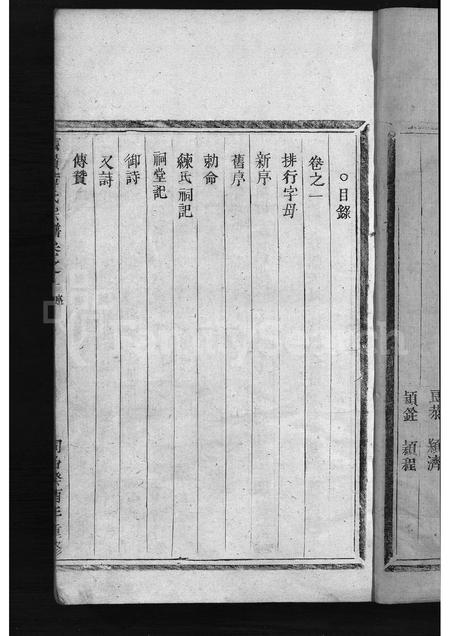 穎濟
穎銓 穎程
○目錄
卷之一
排行字母
新序
舊序
勅命
練氏祠記
祠堂記
御詩
又詩
傳贊
同治癸酉年重修
FamilySearch